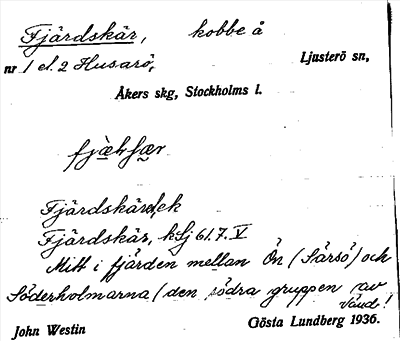 Fjärdskär, kobbe å
nr 1 el. 2 Husarö, Ljusterö sn,
Åkers skg, Stockholms l.
Fjärdskär, ek
Fjärdskär, kSj 61.7. V
Mitt i fjärden mellan Ön (Särsö) och
Söderholmarna (den södra gruppen av
John Westin Gösta Lundberg 1936.